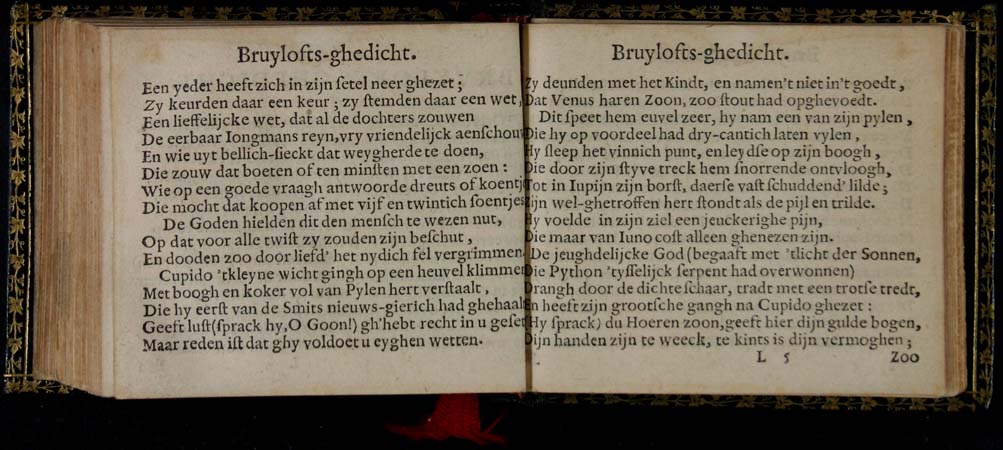 Bruylofts-ghedicht.
Een yeder heeft zich in zijn ſetel neer ghezet;
Zy keurden daar een keur; zy ſtemden daar een wet,
Een lieffelijcke wet, dat al de dochters zouwen
De eerbaar Iongmans reyn, vry vriendelijck aenſchouw
En wie uyt bellich-ſieckt dat weygherde te doen,
Die zouw dat boeten of ten minſten met een zoen:
Wie op een goede vraagh antwoorde dreuts of koentj
Die mocht dat koopen af met vijf en twintich ſoentjes
De Goden hielden dit den menſch te wezen nut,
Op dat voor alle twiſt zy zouden zijn beſchut,
En dooden zoo door liefd' het nydich fel vergrimmen.
Cupido 'tkleyne wicht gingh op een heuvel klimmen
Met boogh en koker vol van Pylen hert verſtaalt,
Die hy eerſt van de Smits nieuws-gierich had ghehaalt
Geeft luſt (ſprack hy, O Goon!) gh'hebt recht in u geſet
Maar reden iſt dat ghy voldoet u eyghen wetten.
Bruylofts-ghedicht.
Zy deunden met het Kindt, en namen't niet in't goedt,
Dat Venus haren Zoon, zoo ſtout had opghevoedt.
Dit ſpeet hem euvel zeer, hy nam een van zijn pylen,
Die hy op voordeel had dry-cantich laten vylen,
Hy ſleep het vinnich punt, en leydſe op zijn boogh,
Die door zijn ſtyve treck hem ſnorrende ontvloogh,
Tot in Iupijn zijn borſt, daerſe vaſt ſchuddend' lilde;
Zijn wel-ghetroffen hert ſtondt als de pijl en trilde.
Hy voelde in zijn ziel een jeuckerighe pijn,
Die maar van Iuno coſt alleen ghenezen zijn.
De jeughdelijcke God (begaaft met 'tlicht der Sonnen,
Die Python 'tyſſelijck ſerpent had overwonnen)
Drangh door de dichte ſchaar, tradt met een trotſe tredt,
En heeft zijn grootſche gangh na Cupido ghezet:
(Hy ſprack) du Hoeren zoon, geeft hier dijn gulde bogen,
Dijn handen zijn te weeck, te kints is dijn vermoghen;
L 5 Zoo